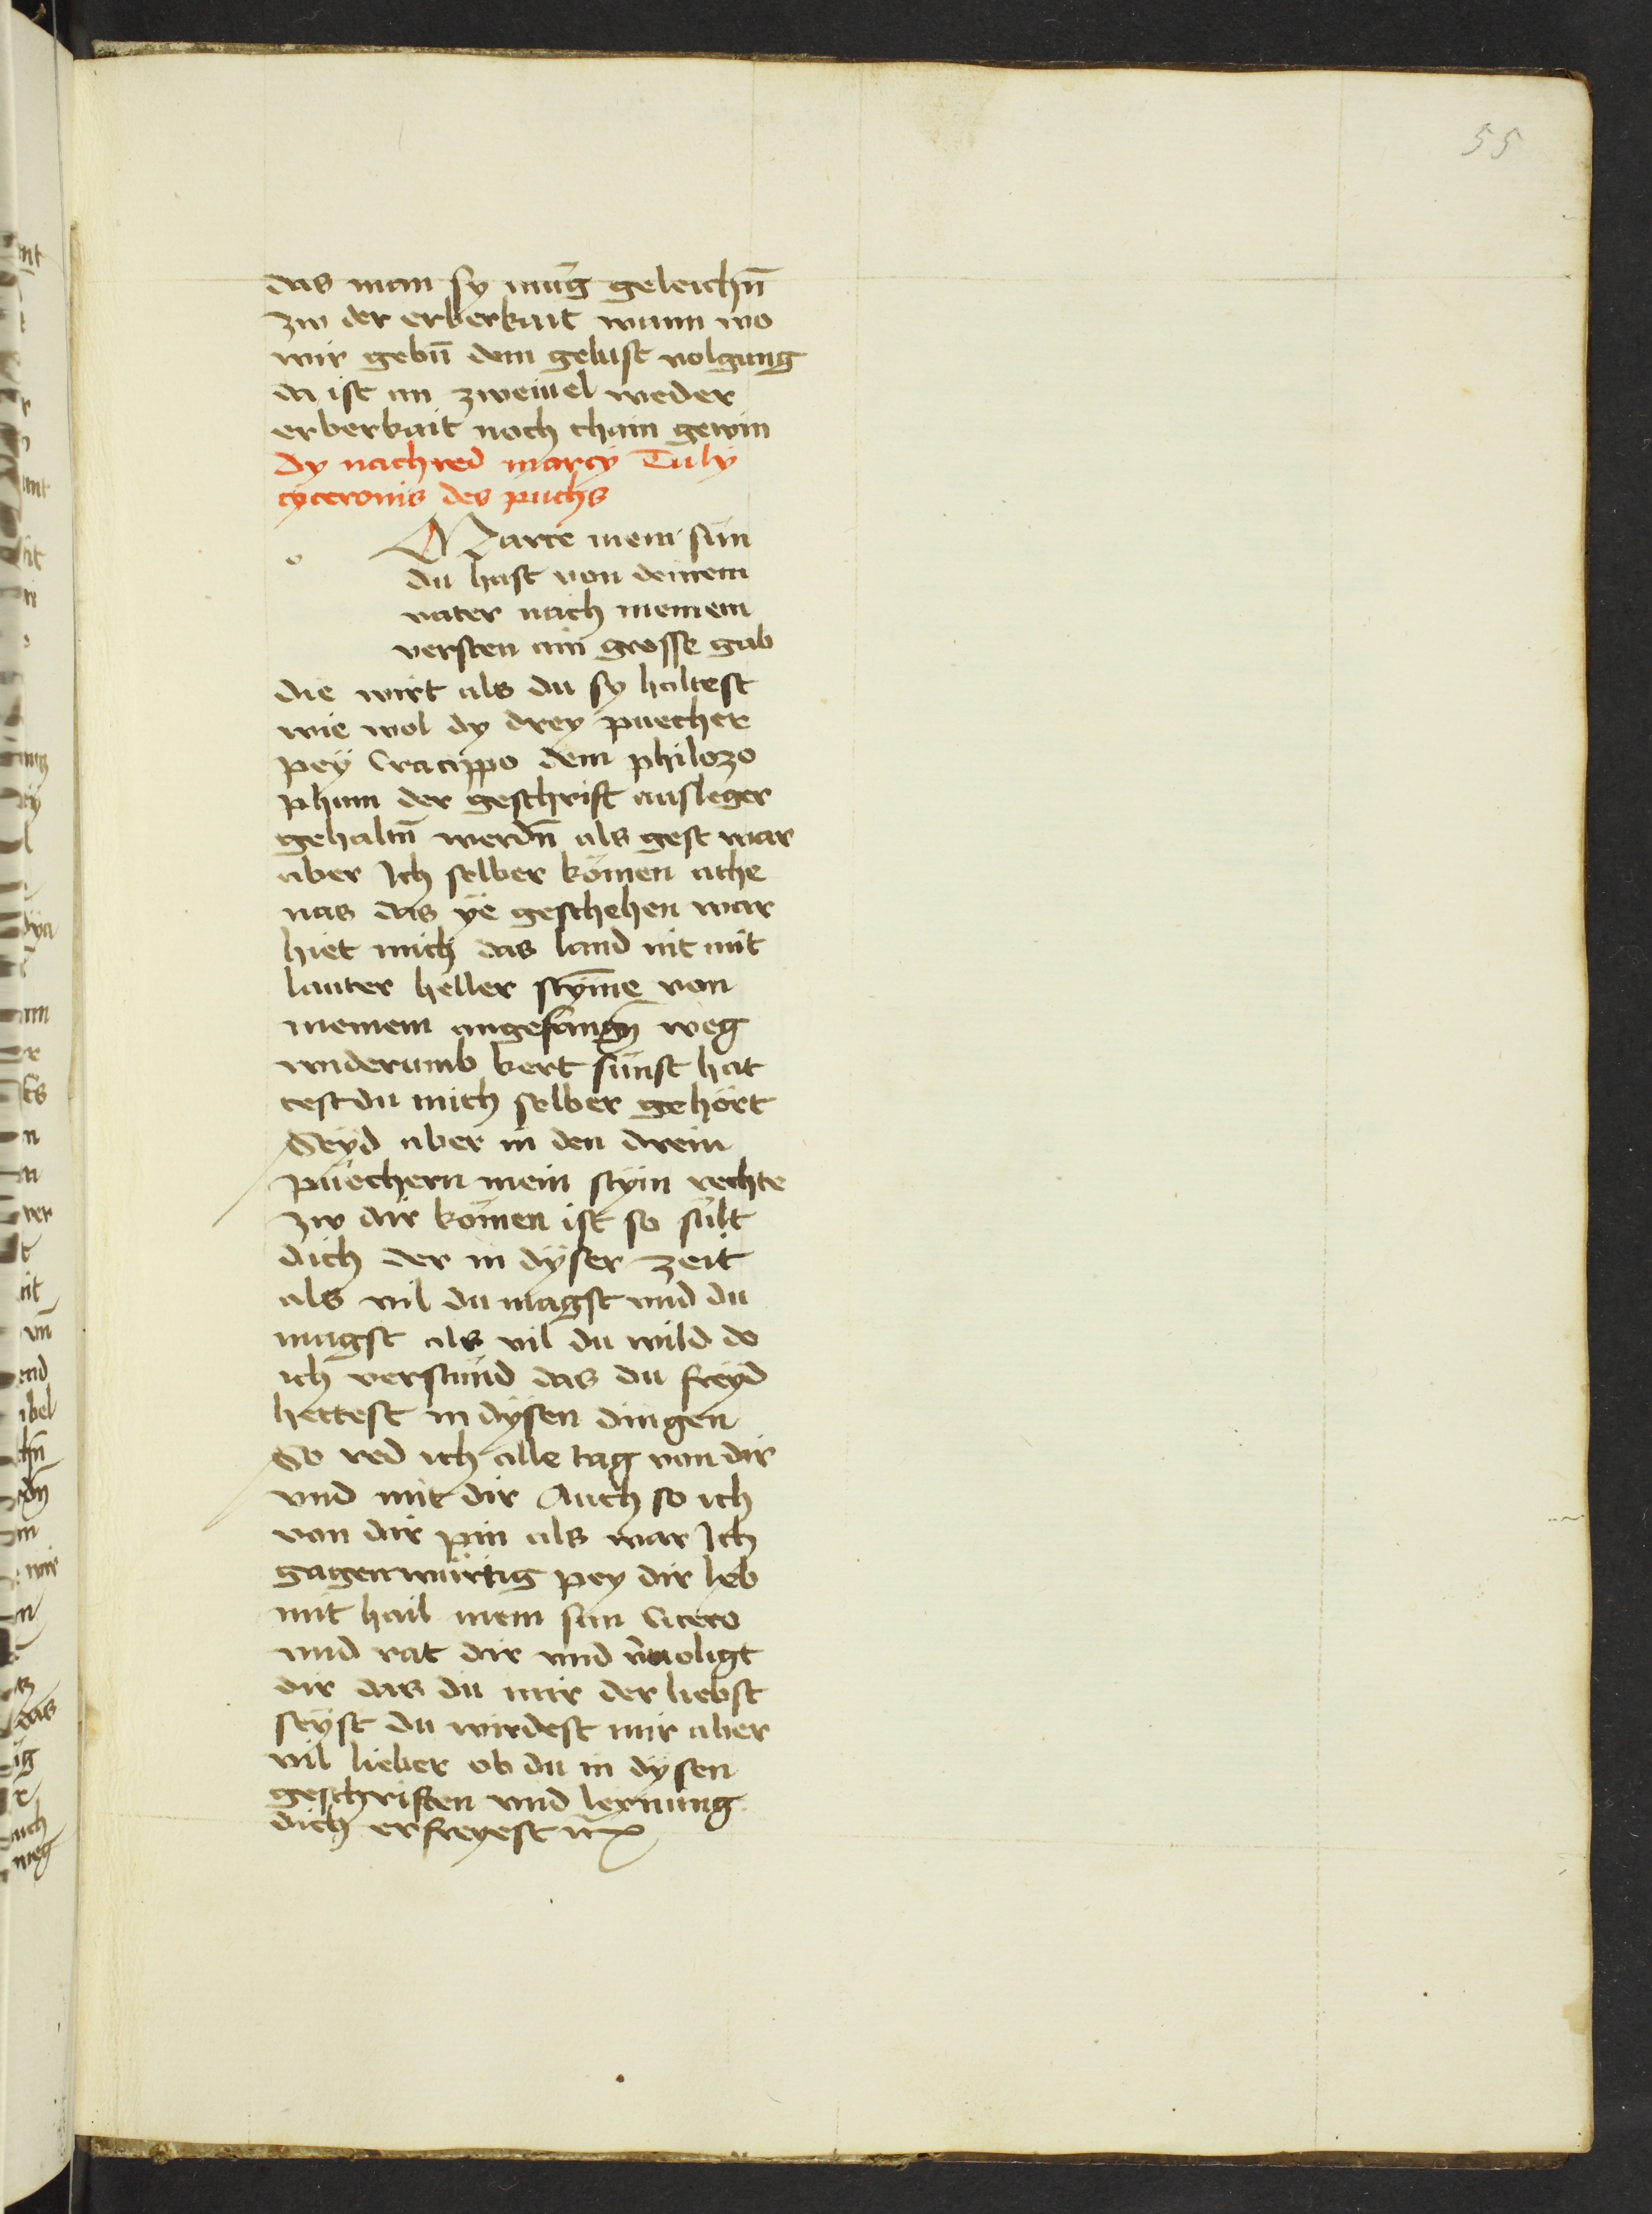 55
das man sy mug geleichn̄
zw der erberkait wann wo
wir gebn̄ dem gelust volgung
da ist an zweiuel weder
erberkait noch chain gewin
Dy nachred marcy Tuly
cyceronis des puchs
o Marce mein sün
du hast von deinem
vater nach meinem
versten ain grosse gab
die wirt als du sy haltest
wie wol dy drey puecher
pey Cracippo dem philozo
phum der geschrift ausleger
gehaltn̄ werdn̄ als gest war
aber Ich selber kömen athe
nas das ye geschehen war
hiet mich das land nit mit
lauter heller stȳme von
meinem angefangn̄ weg
widerumb kert sünst hat
test du mich selber gehört
Seyd aber in den drein
püechern mein stym rechte
zw dir kömen ist so sült
dich der in dyser zeit
als vil du magst vnd du
magst als vil du wild do
ich verstünd das du freyd
hettest in dysen dingen
So red ich alle tag von dir
vnd mit dir Auch so ich
von dir pin als war Ich
gagenwürtig pey dir leb
mit hail mein sün Cicero
vnd rat dir vnd
dir das du mir der liebst
seyst du wirdest mir aber
vil lieber ob du in dysen
geschriften vnd lernung
dich erfreyest